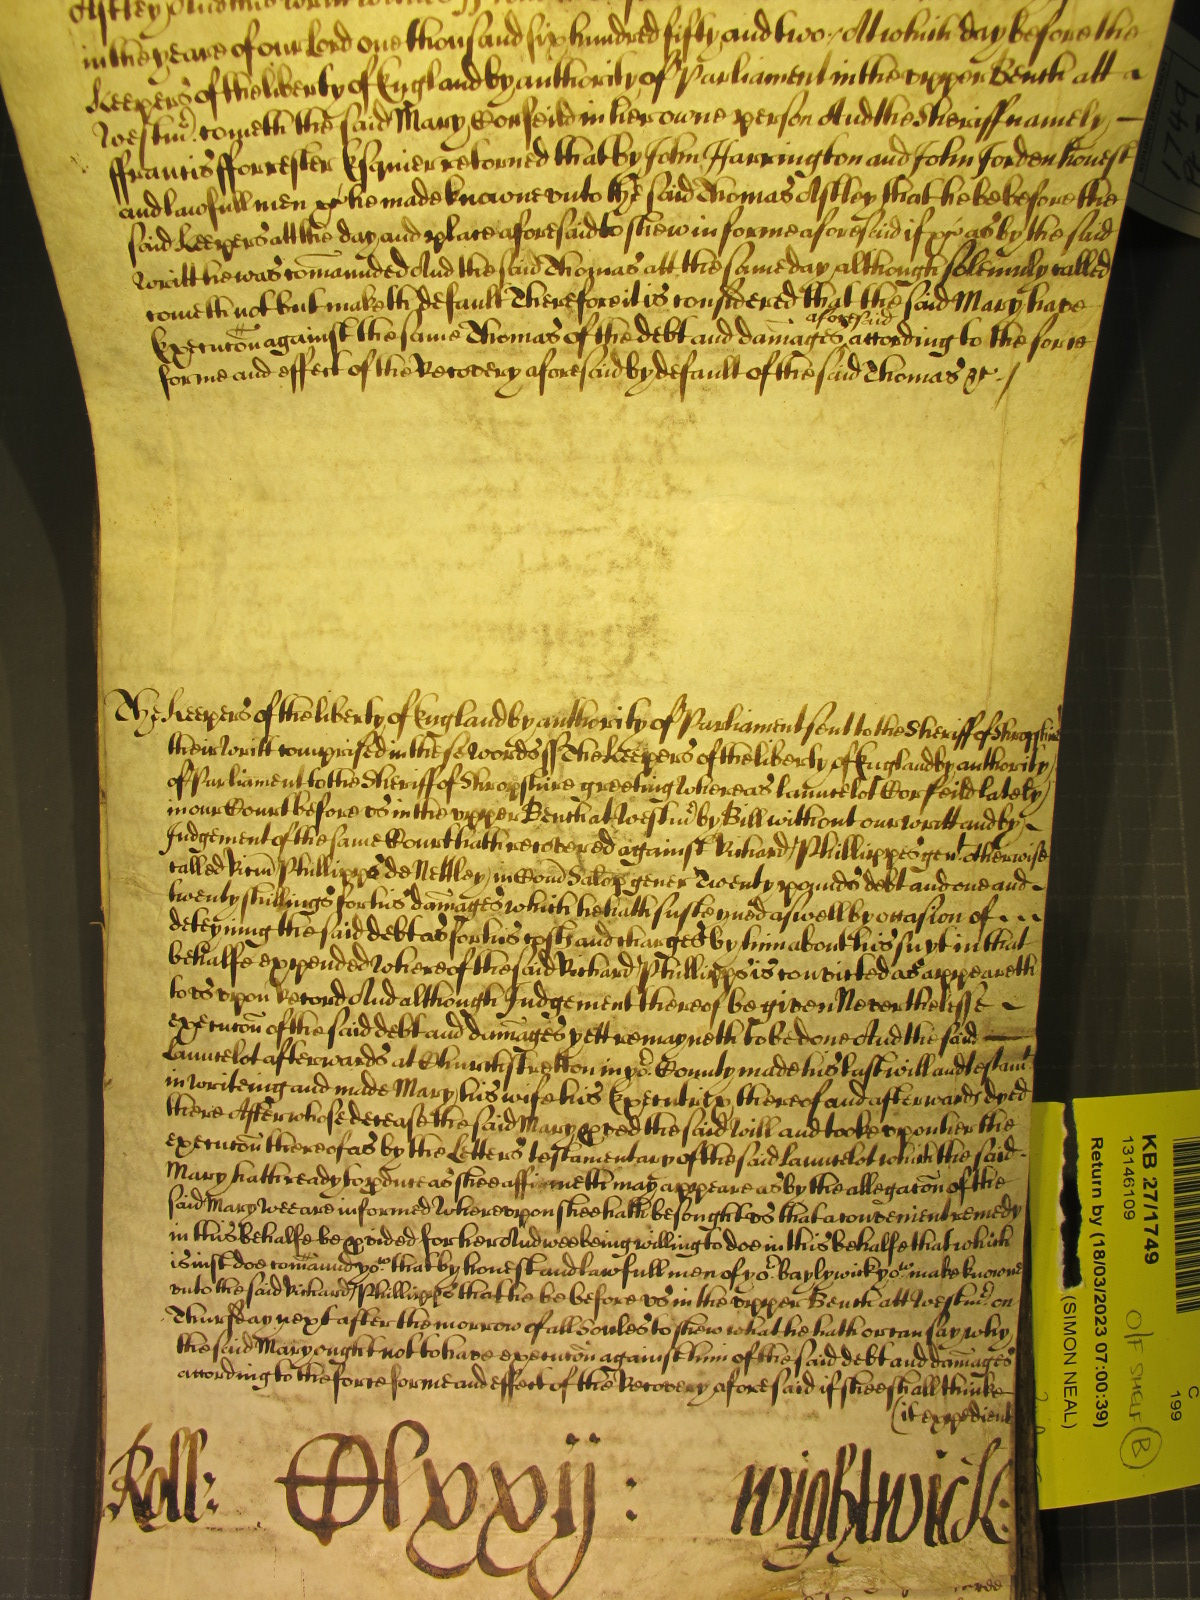 in the yeare of our Lord one thousand six hundred fifty and two / At which day before the
Keepers of the liberty of England by authority of Parliament in the upper Bench att
Westmr. cometh the said Mary Corfeild in her owne person And the Sheriff namely
ffrancis fforrester Esquier retorned that by John Harrington and John Jorden honest
and lawfull men &c he made knowne unto the said Thomas Astley that he be before the
said Keepers att the day and place aforesaid to shew in forme aforesaid if &c as by the said
writt he was comaunded And the said Thomas att the same day although solemnly called
cometh not but maketh default Therefore it is considered that the said Mary have
Execucõn against the same Thomas of the debt and damages aforesaid according to the force
forme and effect of the Recovery aforesaid by default of the said Thomas &c /
The Keepers of the liberty of England by authority of Parliament sent to the Sheriff of Shropshire
their writt comprised in these words ss The Keepers of the liberty of England by authority
of Parliament to the Sheriff of Shropshire greeting Whereas Launcelot Corfeild lately
in our Court before us in the upper Bench at Westmr. by Bill without our writt and by
Judgement of the same Court hath recovered against Richard Phillippes gent otherwise
called Ricũm Phillipps de Nettley in Com̃ Salop gener Twenty pounds debt and one and
twenty shillings for his damages which he hath susteyned aswell by occasion of
deteyning the said debt as for his costs and charges by him about his suyt in that
behalfe expended Whereof the said Richard Phillipps is convicted as appeareth
to us upon Record And although Judgement thereof be given Neverthelesse
execucõn of the said debt and damages yett remayneth to be done And the said
Launcelot afterwards at Church stretton in yor. County made his last will and testamt.
in writeing and made Mary his wife his Executrix thereof and afterwards dyed
there After whose decease the said Mary pved the said will and tooke upon her the
execucõn thereof as by the Letters testamentary of the said Launcelot which the said
Mary hath ready to pduce as shee affirmeth may appeare as by the allegacõn of the
said Mary wee are informed Whereupon shee hath besought us that a convenient remedy
in this behalfe be pvided for her And wee being willing to doe in this behalfe that which
is iust doe comaund you. that by honest and lawfull men of yor. Baylywick you. make knowne
unto the said Richard Phillipps that he be before us in the upper Bench att Westmr. on
Thursday next after the morrow of all Soules to shew what he hath or can say why
the said Mary ought not to have execucõn against him of the said debt and damages
according to the force forme and effect of the Recovery aforesaid if shee shall thinke
(it expedient
Roll: Clxxij : Wightwick:
1749
KB 27/1749
13146109
Return by (18/03/2023 07:00:39)
(SIMON NEAL)
C
199
O/F SHELF B